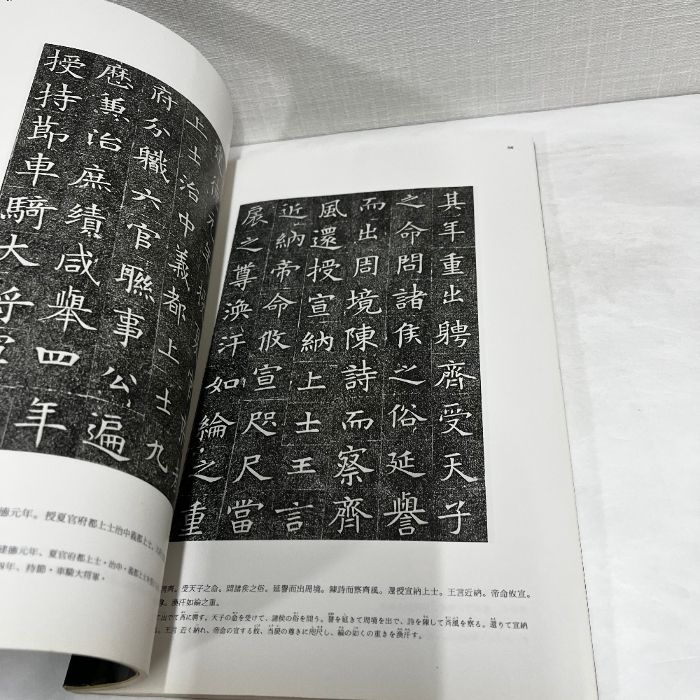 上士治中義都上士九
府分職六官聯事公遍
歷兼治庶績咸舉四年
授持節車騎大將軍
德元年。授夏官府都上士治中義都上士。
建德元年、夏官府都上士・治中・義都上士
四年、持節・車騎大将軍・
58
其年重出聘齊受天子
之命問諸侯之俗延譽
而出周境陳詩而察齊
風還授宣納上士王言
近納帝命攸宣咫尺當
扆之尊渙汗如綸之重
聘齊。受天子之命。問諸侯之俗。延譽而出周境。陳詩而察齊風。還授宣納上士。王言近納。帝命攸宣。
尊。渙汗如綸之重。
出でて斉に聘す。天子の命を受けて、諸侯の俗を問う。誉を延きて周境を出で、詩を陳して斉風を察る。還りて宣納
王言 近く納れ、帝命の宣する攸、当扆の尊きに咫尺し、綸の如くの重きを渙汗す。